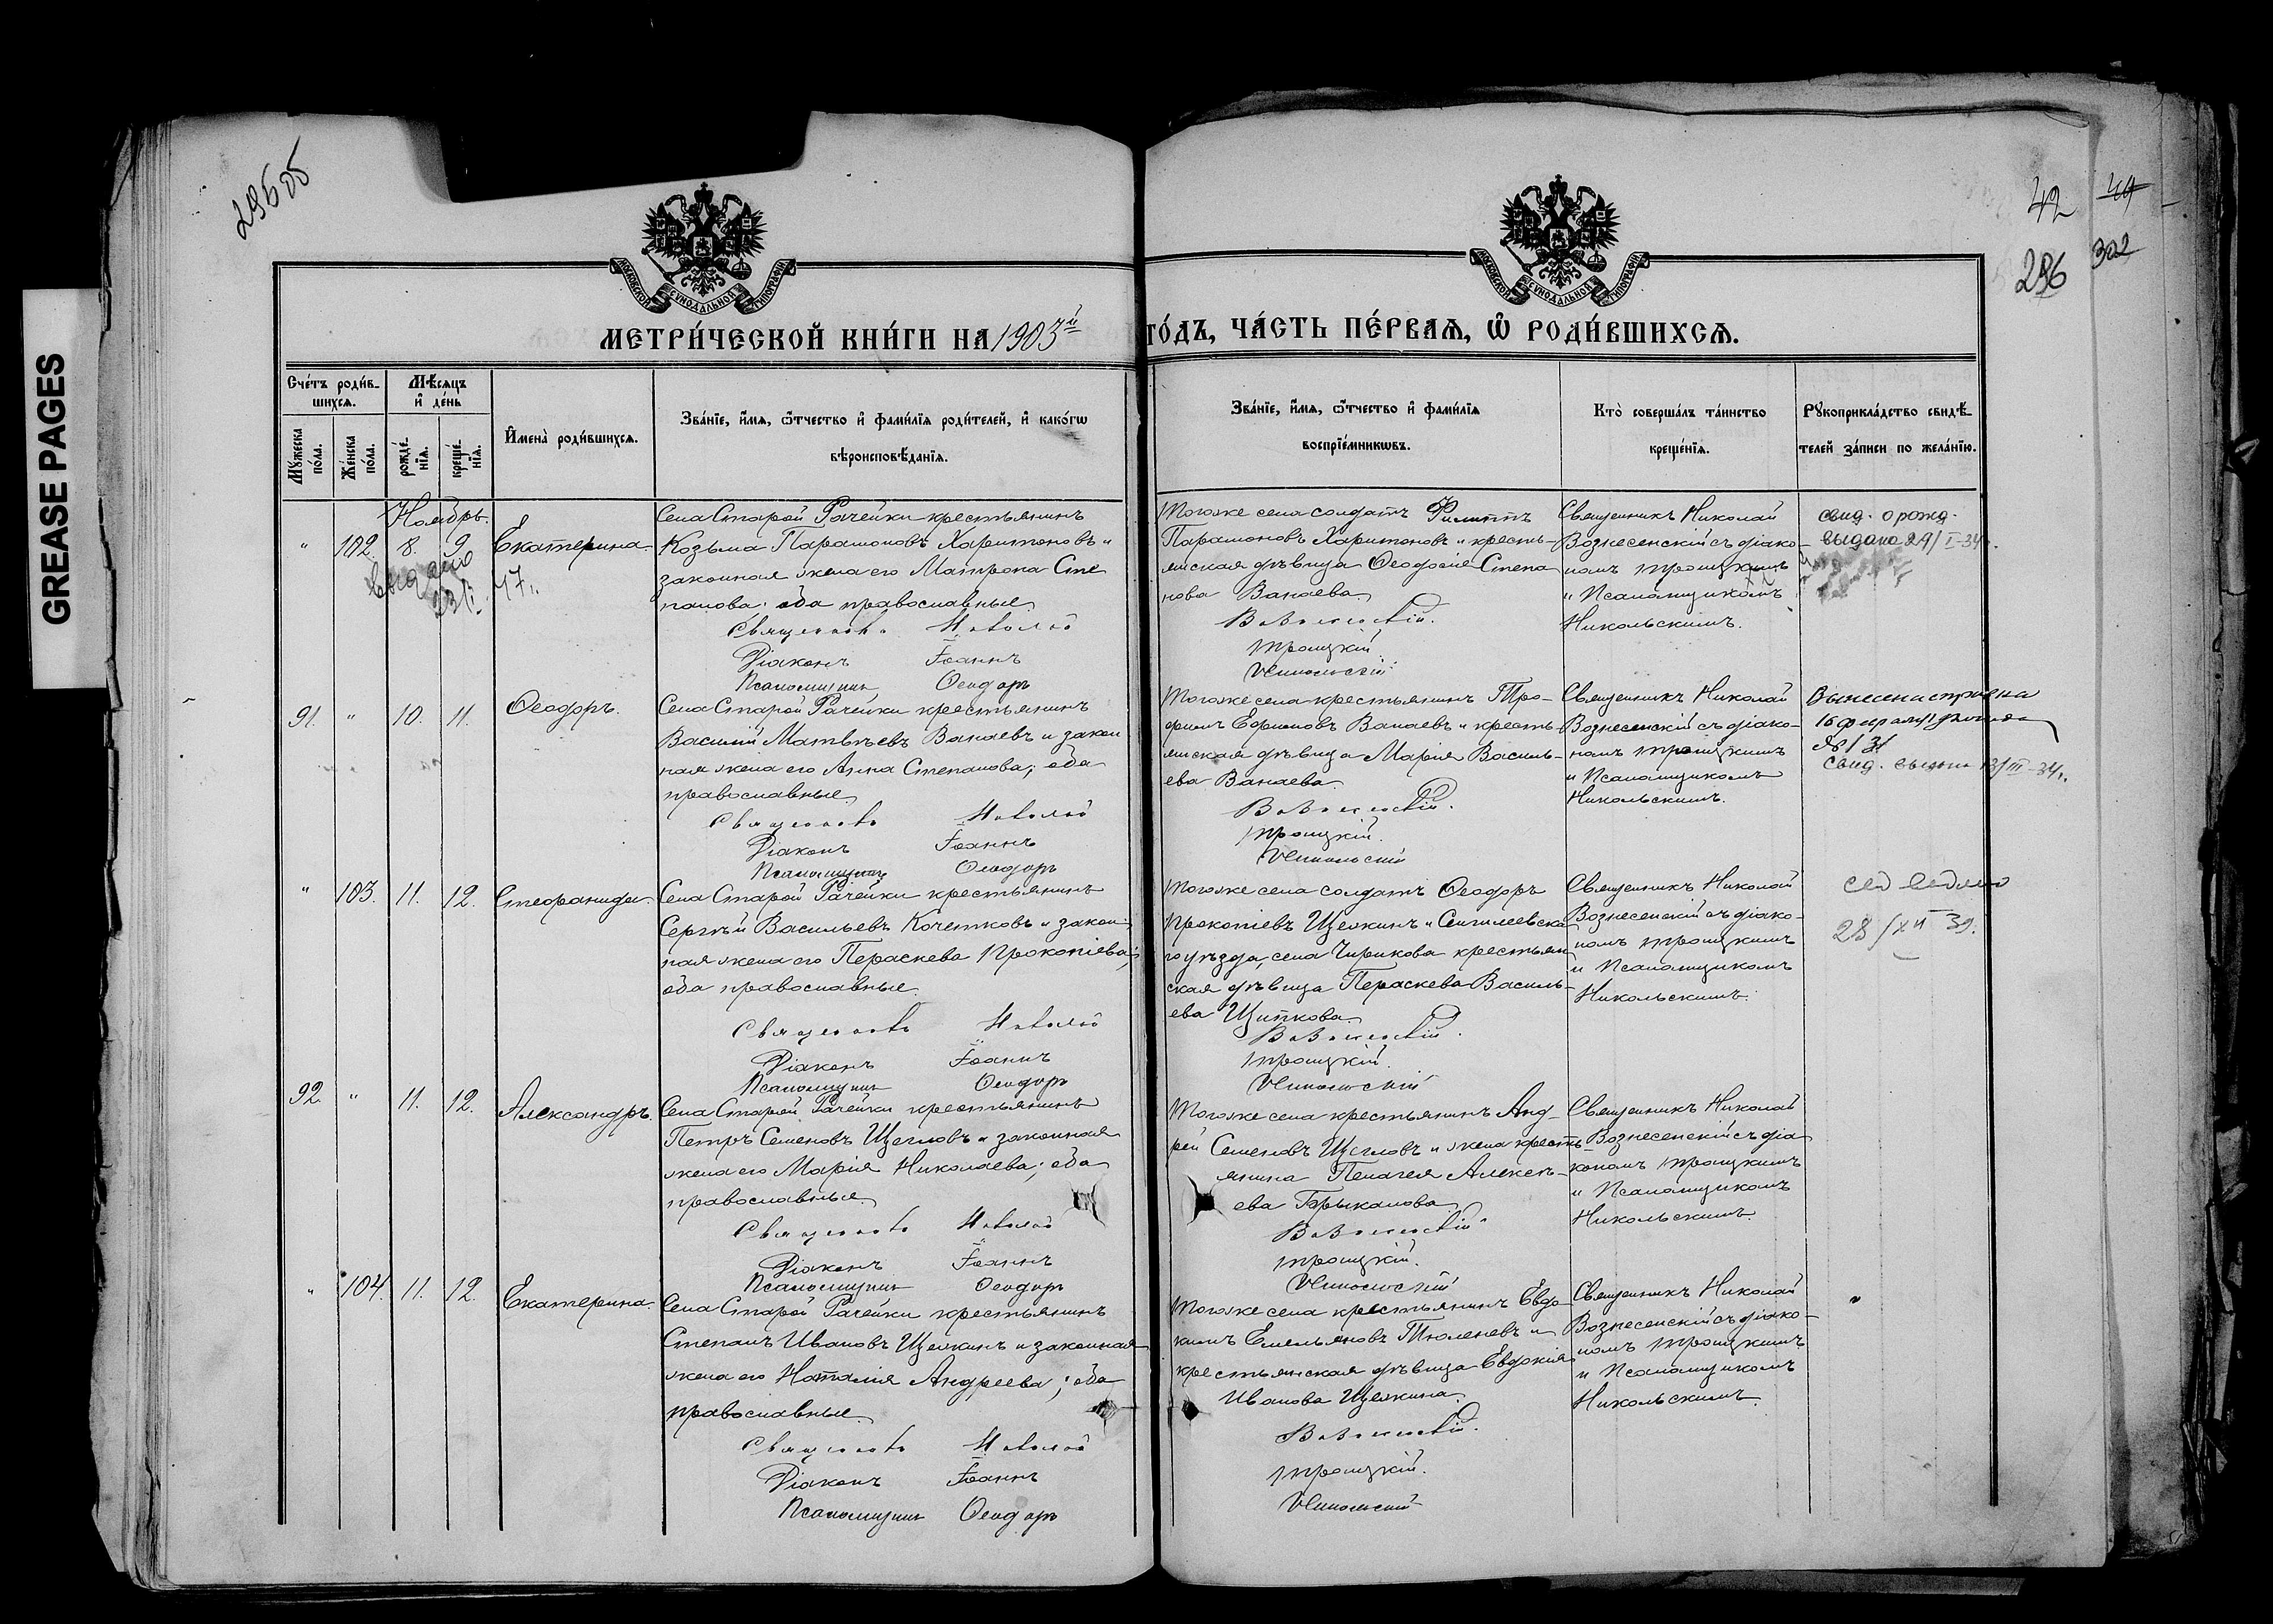 GREASE PAGES
29505
42
44
296
302
МОСКОВСКОЙ СѴНОДАЛЬНОЙ ТИПОГРАФІИ
МОСКОВСКОЙ СѴНОДАЛЬНОЙ ТИПОГРАФІИ
МЕТРИ́ЧЕСКОЙ КНИ́ГИ НА 1903й ГО́ДЪ, ЧА́СТЬ ПЕ́РВАѦ, Ѡ҆ РОДИ́ВШИХСѦ.
Сче́тъ роди́в-
шихсѧ.
Мꙋ́жеска по́ла.
Же́нска по́ла.
Мѣ́сѧцъ
и҆ де́нь
рожде́-
нїѧ.
креще́-
нїѧ.
И҆мена̀ роди́вшихсѧ.
Зва́нїе, и҆́мѧ, ѻ҆́тчество и҆ фами́лїѧ роди́телей, и҆ како́гѡ
вѣроисповѣ́данїѧ.
Зва́нїе, и҆́мѧ, ѻ҆́тчество и҆ фами́лїѧ
воспрїе́мникѡвъ.
Кто̀ соверша́лъ та́инство
креще́нїѧ.
Рꙋкоприкла́дство свидѣ́-
телей за́писи по жела́нїю.
Ноябрь.
" 102. 8. 9. Екатерина.
выдано
23/I 47г.
Села Старой Рачейки крестьянинъ
Козьма Парамоновъ Харитоновъ и
законная жена его Матрона Сте
панова; оба православные.
Священникъ Николай
Діаконъ Іоаннъ
Псаломщикъ Ѳеодоръ
Тогоже села солдатъ Филиппъ
Парамоновъ Харитоновъ и кресть-
янская дѣвица Ѳеодосія Степа
нова Ванаева.
Вознесенскій.
Троицкій.
Никольскій.
Священникъ Николай
Вознесенскій съ діако-
номъ Троицкимъ
и Псаломщикомъ
Никольскимъ.
свид. о рожд.
выдано 29/I-34г.
91. " 10. 11. Ѳеодоръ.
Села Старой Рачейки крестьянинъ
Василій Матвѣевъ Ванаевъ и закон
ная жена его Анна Степанова; оба
православные.
Священникъ Николай
Діаконъ Іоаннъ
Псаломщикъ Ѳеодоръ
Тогоже села крестьянинъ Тро-
фимъ Ефимовъ Ванаевъ и кресть-
янская дѣвица Марія Василь-
ева Ванаева.
Вознесенскій.
Троицкій.
Никольскій
Священникъ Николай
Вознесенскій съ діако-
номъ Троицкимъ
и Псаломщикомъ
Никольскимъ.
13/III-34г.
" 103. 11. 12. Стефанида.
Села Старой Рачейки крестьянинъ
Сергѣй Васильевъ Кочетковъ и закон-
ная жена его Параскева Прокопіева;
оба православные.
Священникъ Николай
Діаконъ Іоаннъ
Псаломщикъ Ѳеодоръ
Тогоже села солдатъ Ѳеодоръ
Прокопіевъ Щелкинъ и Сенгилеевска
го уѣзда, села Чирикова крестьян
ская дѣвица Параскева Василь-
ева Щипкова.
Вознесенскій.
Троицкій.
Никольскій
Священникъ Николай
Вознесенскій съ діако-
номъ Троицкимъ
и Псаломщикомъ
Никольскимъ.
28/XII 39.
92. " 11. 12. Александръ.
Села Старой Рачейки крестьянинъ
Петръ Семеновъ Щегловъ и законная
жена его Марія Николаева; оба
православные.
Священникъ Николай
Діаконъ Іоаннъ
Псаломщикъ Ѳеодоръ
Тогоже села крестьянинъ Анд-
рей Семеновъ Щегловъ и жена кресть-
янина Пелагея Алексѣ-
ева Брыканова.
Вознесенскій
Троицкій.
Никольскій
Священникъ Николай
Вознесенскій съ діа
кономъ Троицкимъ
и Псаломщикомъ
Никольскимъ.
" 104. 11. 12. Екатерина.
Села Старой Рачейки крестьянинъ
Степанъ Ивановъ Щелкинъ и законная
жена его Наталія Андреева; оба
православные.
Священникъ Николай
Діаконъ Іоаннъ
Псаломщикъ Ѳеодоръ
Тогоже села крестьянинъ Евдо-
кимъ Емельяновъ Тюленевъ и
крестьянская дѣвица Евдокія
Иванова Щелкина.
Вознесенскій.
Троицкій.
Никольскій
Священникъ Николай
Вознесенскій съ діако-
номъ Троицкимъ
и Псаломщикомъ
Никольскимъ.